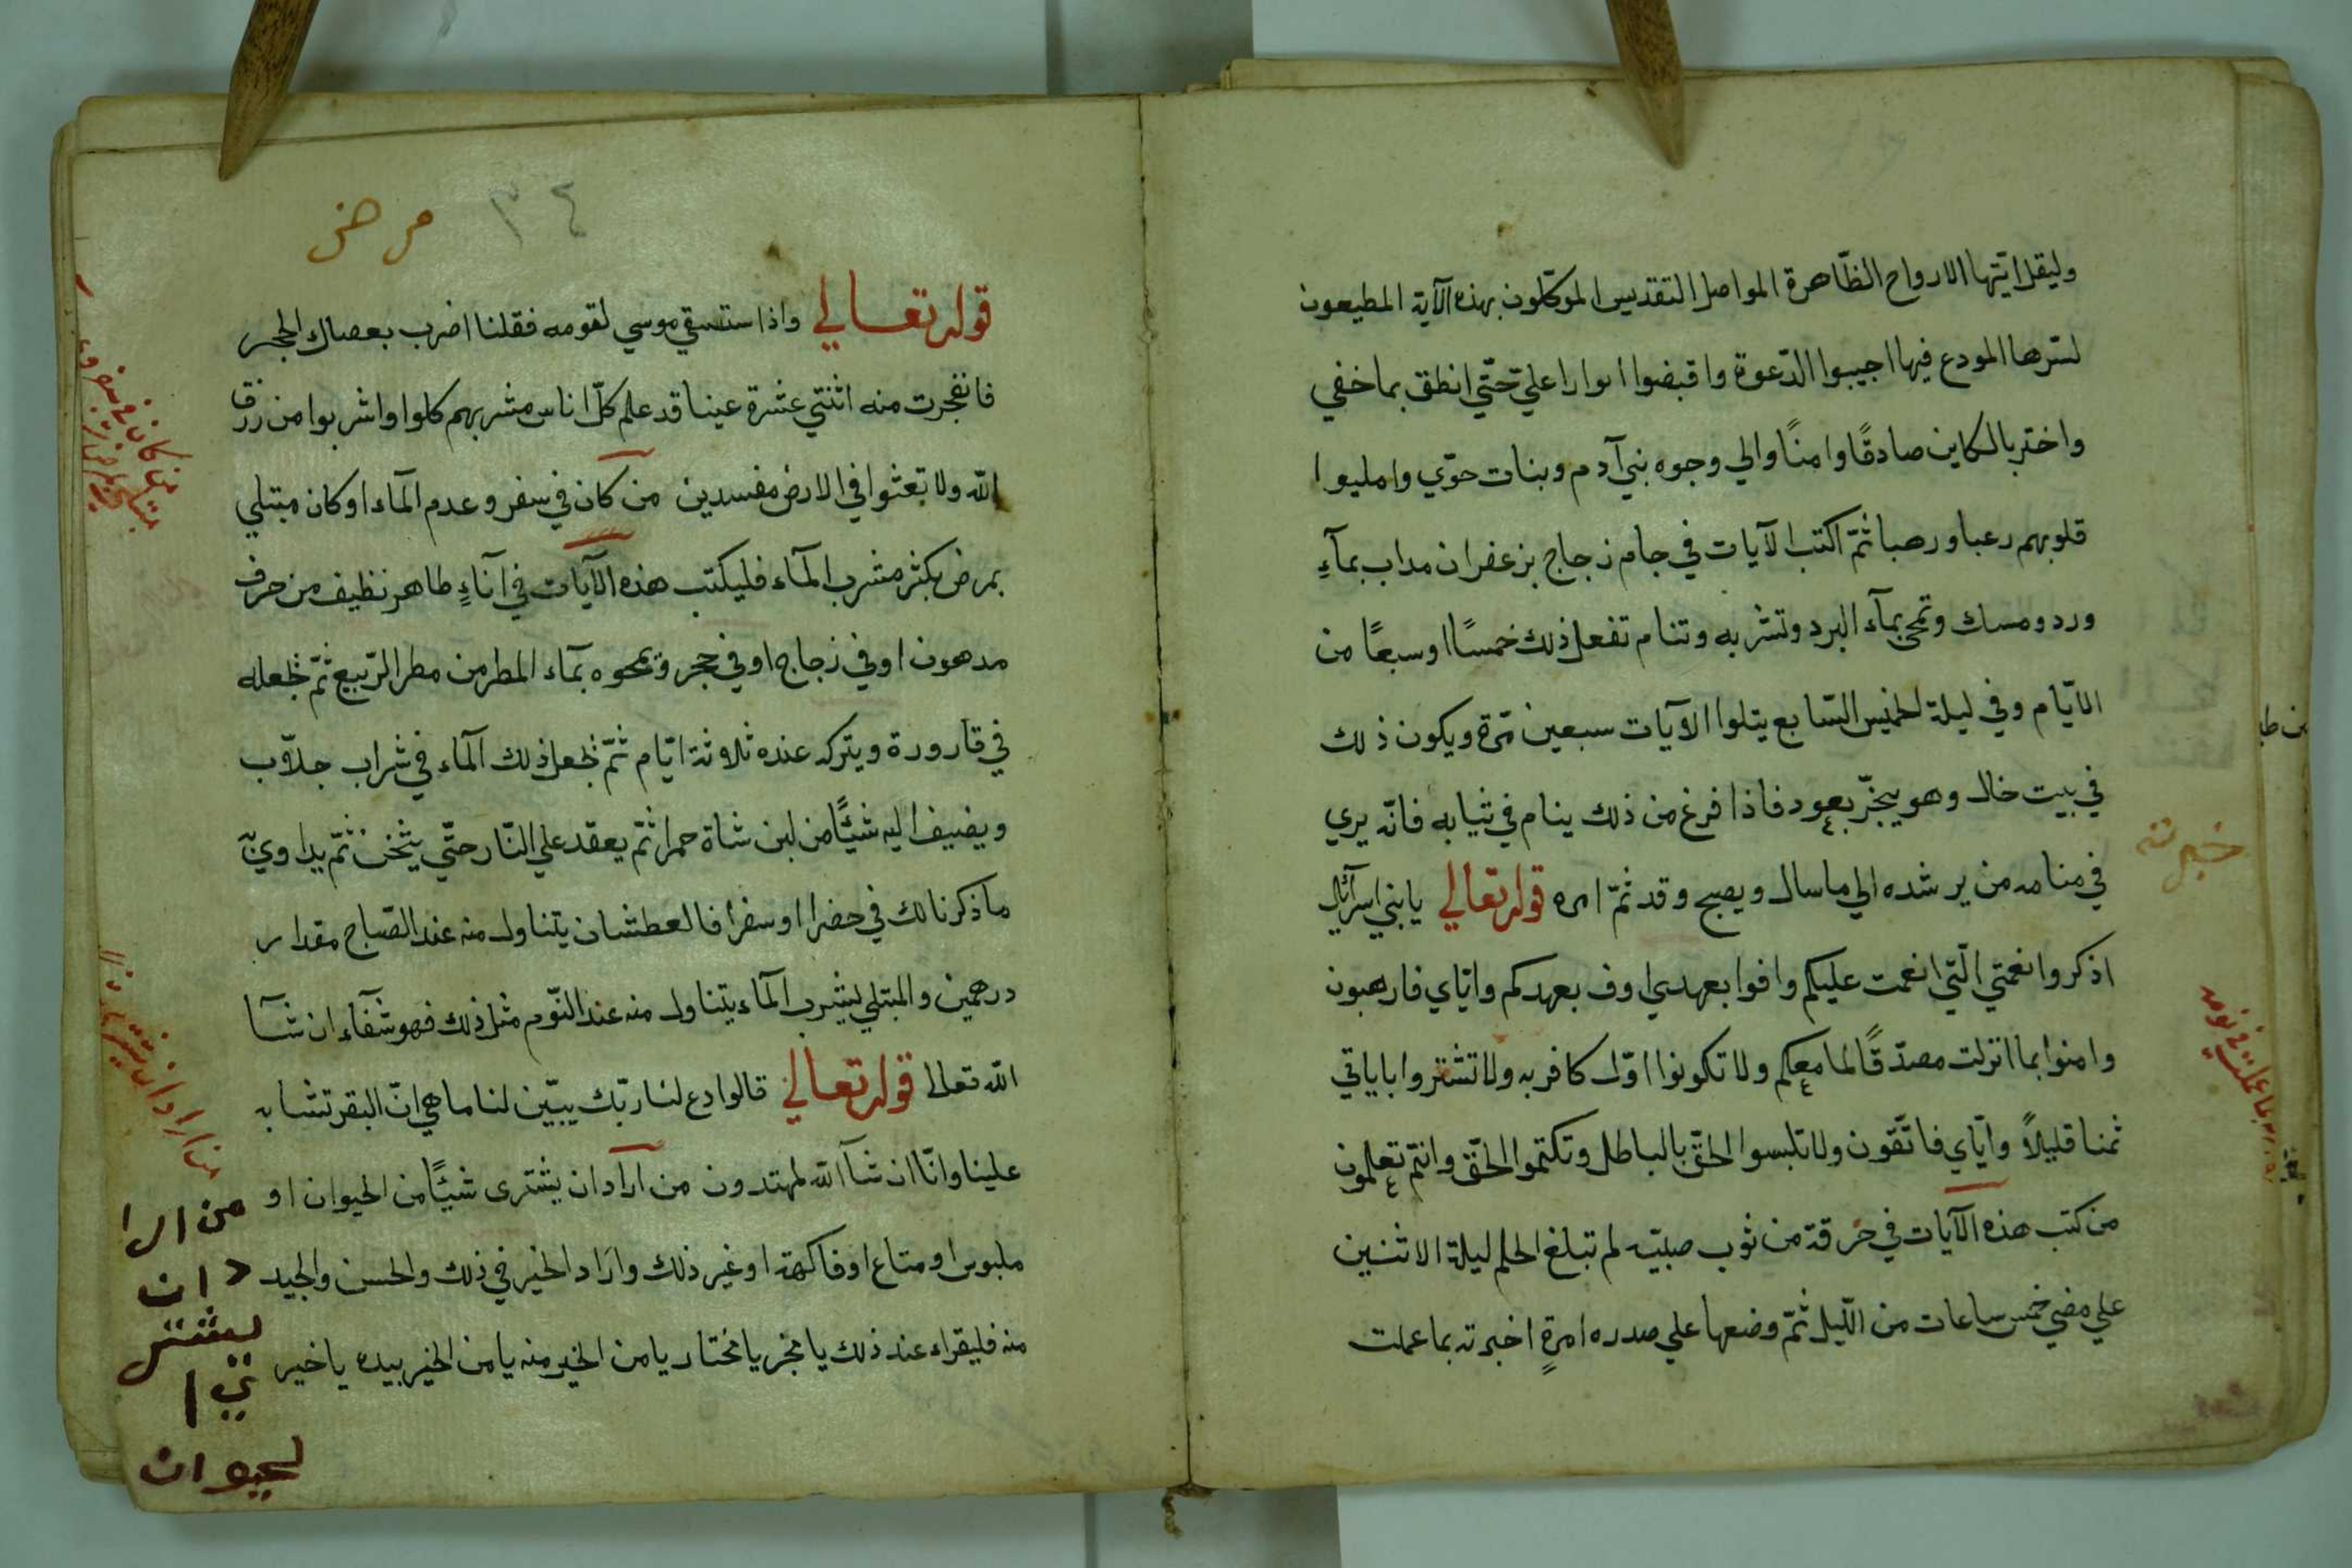 وليقل ايّتها الارواح الظّاهرة المواصل التقديس الموكّلون بهذه الآية المطيعون
لسترها المودع فيها اجيبوا الدّعوة واقبضوا انوارا عليّ حتّي انطق بما خفي
واختر بالكاين صادقًا وامنًا والي وجوه بني آدم وبنات حوّي وامليوا
قلوبهم رعبا ورهبا ثمّ اكتب الآيات في جام زجاج بزعفران مداب بمآءِ
ورد ومسك وتمحي بمآء البرد وتشربه وتنام تفعل ذلك خمسًا اوسبعًا من
الايّام وفي ليلة الخميس السّابع يتلوا الآيات سبعين مّرة ويكون ذلك
في بيت خال وهو يبخّر بعود فاذا فرغ من ذلك ينام في ثيابه فانّه يري
في منامه من يرشده الي ماسال ويصبح وقد ثمّ امره قوله تعالي يا بني اسرآئيل
اذكروا نعمتي الّتي انعمت عليكم وافوا بعهدي اوف بعهدكم وايّاي فارهبون
وامنوا بما انزلت مصدّقًا لما معكم ولا تكونوا اوّل كافر به ولا تشتروا باياتي
ثمنا قليلاً وايّاي فاتّقون ولا تلبسوا الحقّ بالباطل وتكتموا الحقّ وانتم تعلمون
من كتب هذه الآيات في خرقة من ثوب صبيّه لم تبلغ الحلم ليلة الاثنين
علي مضي خمس ساعات من اللّيل ثمّ وضعها علي صدره امرةٍ اخبرته بما عملت
خبرته
بما عملت في نومه
٣٤
مرض
قوله تعالي واذا ستسقي موسي لقومه فقلنا اضرب بعصاك الحجر
فانفجرت منه اثنتي عشرة عينا قد علم كلّ اناس مشربهم كلوا واشربوا من رزق
الله ولا تعثوا في الارض مفسدين من كان في سفر وعدم المآء اوكان مبتلي
بمرض يكثر مشرب المآء فليكتب هذه الآيات في اناءٍ طاهر نظيف من خرف
مدهون اوفي زجاج اوفي حجر ويمحوه بمآء المطر من مطر الرّبيع ثمّ يجعله
في قارورة ويتركه عنده ثلاثة ايّام ثمّ يجعل ذلك المآء في شراب جلاّب
ويضيف اليه شيئًا من لبن شاة حمرا ثمّ يعقد علي النّار حتّي يثخن ثمّ يداوي
ما ذكرنا لك في حضرا اوسفرا فالعطشان يتناول منه عند الصّباح مقدار
درهمين والمبتلي بشرب المآء يتناول منه عند النّوم مثل ذلك فهو شفآء ان شآ
الله تعالي قوله تعالي قالوا ادع لنا ربّك يبيّن لنا ما هي انّ البقر تشابه
علينا وانّا ان شآ الله لمهتدون من اراد ان يشتري شيئًا من الحيوان او
ملبوس اومتاع اوفاكهة اوغير ذلك واراد الخير في ذلك والحسن والجيد
منه فليقراء عند ذلك يا مخبر يا مختار يا من الخير منه يا من الخير بيده يا خير
من كان في سفر
من اراد ان يشتري
من الرا
د ان
يشتر
ي ا
لحيوان